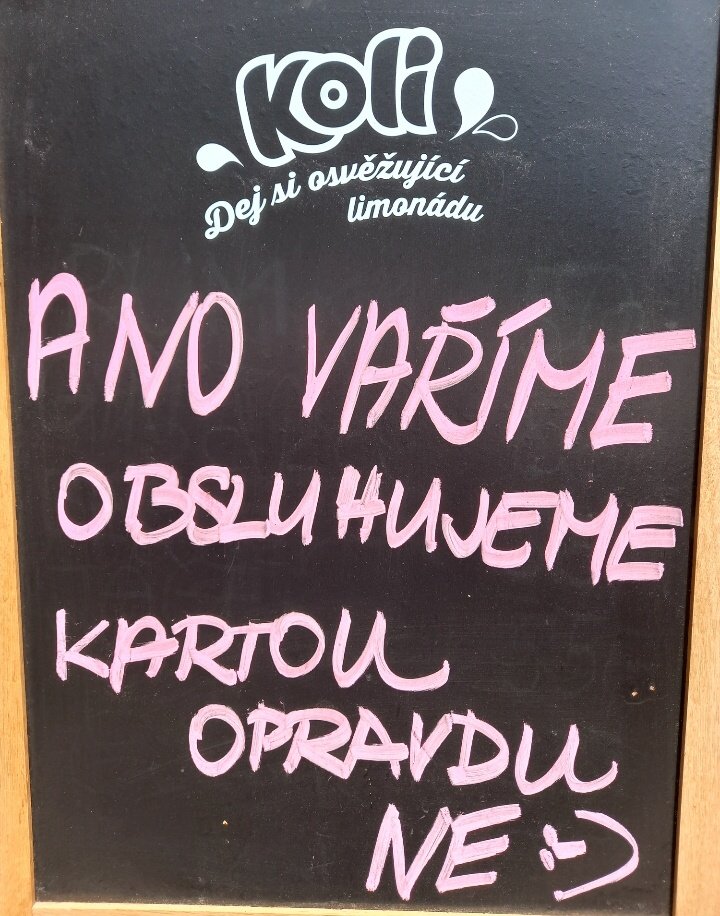 Koli
Dej si osvěžující
limonádu
ANO VAŘÍME
OBSLUHUJEME
KARTOU
OPRAVDU
NE :-)